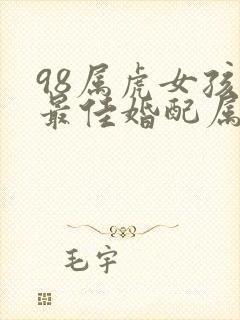 98属虎女孩
最佳婚配属
毛宇